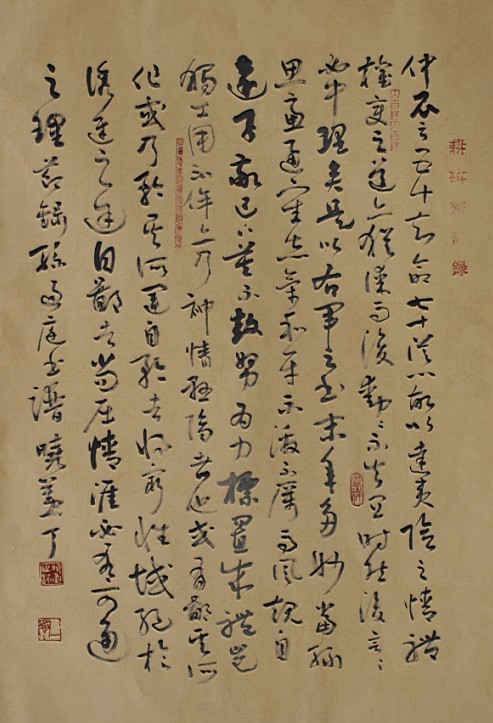 仲尼云五十知命七十從心故以達夷險之情體
權變之道亦猶謀而後動〻不失宜時然後言〻
必中理矣是以右軍之書末年多妙當緣
思慮通審志氣和平不激不厲而風規自
遠子敬已下莫不鼓努為力標置成體豈
獨工用不侔亦乃神情懸隔者也或有鄙其所
作或乃矜其所運自矜者將窮性域絕於
誘進之途自鄙者尚屈情涯必有可通
之理節錄孫過庭書譜曉